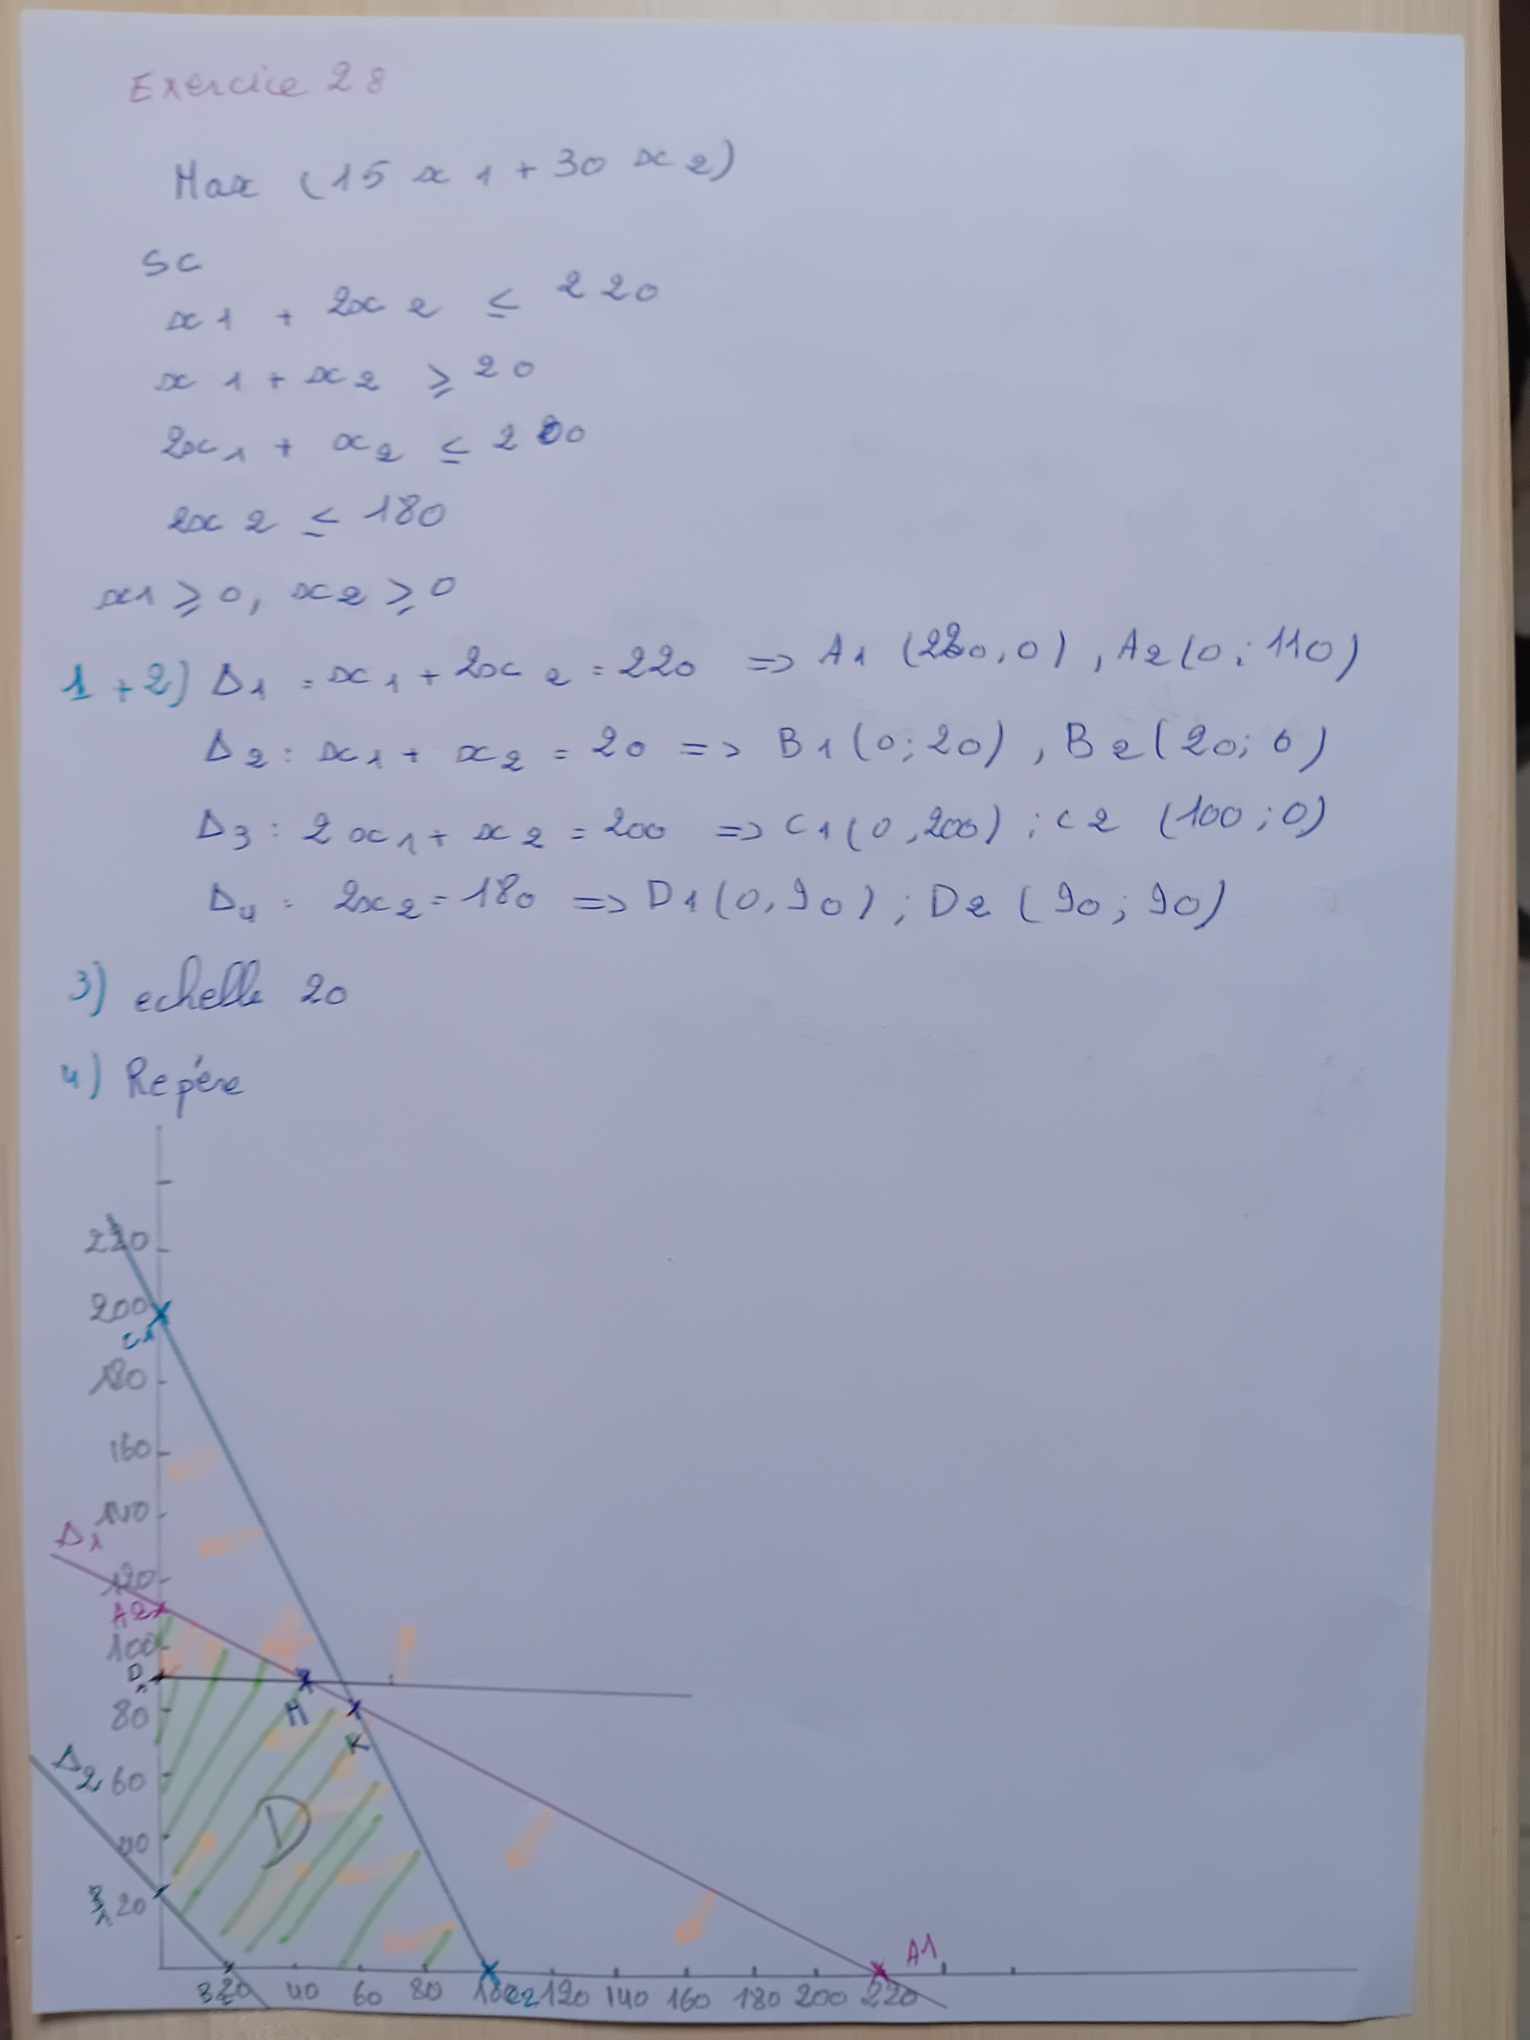 Exercice 28
Max (15 x1 + 30 x2)
SC
x1 + 2x2 ≤ 220
x1 + x2 ≥ 20
2x1 + x2 ≤ 200
2x2 ≤ 180
x1 ≥ 0, x2 ≥ 0
1+2) Δ1 = x1 + 2x2 = 220 => A1 (220,0), A2(0; 110)
Δ2 : x1 + x2 = 20 => B1(0; 20), B2(20; 0)
Δ3 : 2x1 + x2 = 200 => C1(0,200) ; C2 (100; 0)
Δ4 : 2x2 = 180 => D1(0,90) ; D2 (90; 90)
3) echelle 20
4) Repére
220
200
C1
180
160
140
Δ1
120
A2
100
D1
80
M
K
Δ2
60
D
40
B1 20
A1
B2 20 40 60 80 100 C2 120 140 160 180 200 220